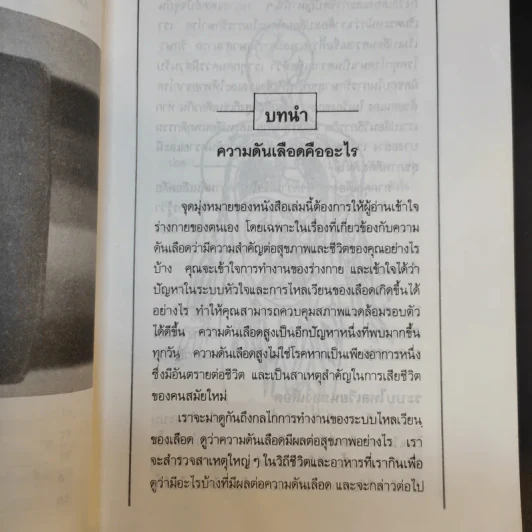 บทนำ
ความดันเลือดคืออะไร
จุดมุ่งหมายของหนังสือเล่มนี้ต้องการให้ผู้อ่านเข้าใจ
ร่างกายของตนเอง โดยเฉพาะในเรื่องที่เกี่ยวข้องกับความ
ดันเลือดว่ามีความสำคัญต่อสุขภาพและชีวิตของคุณอย่างไร
บ้าง คุณจะเข้าใจการทำงานของร่างกาย และเข้าใจได้ว่า
ปัญหาในระบบหัวใจและการไหลเวียนของเลือดเกิดขึ้นได้
อย่างไร ทำให้คุณสามารถควบคุมสภาพแวดล้อมรอบตัว
ได้ดีขึ้น ความดันเลือดสูงเป็นอีกปัญหาหนึ่งที่พบมากขึ้น
ทุกวัน ความดันเลือดสูงไม่ใช่โรคหากเป็นเพียงอาการหนึ่ง
ซึ่งมีอันตรายต่อชีวิต และเป็นสาเหตุสำคัญในการเสียชีวิต
ของคนสมัยใหม่
เราจะมาดูกันถึงกลไกการทำงานของระบบไหลเวียน
ของเลือด ดูว่าความดันเลือดมีผลต่อสุขภาพอย่างไร เรา
จะสำรวจสาเหตุใหญ่ ๆ ในวิถีชีวิตและอาหารที่เรากินเพื่อ
ดูว่ามีอะไรบ้างที่มีผลต่อความดันเลือด และจะกล่าวต่อไป